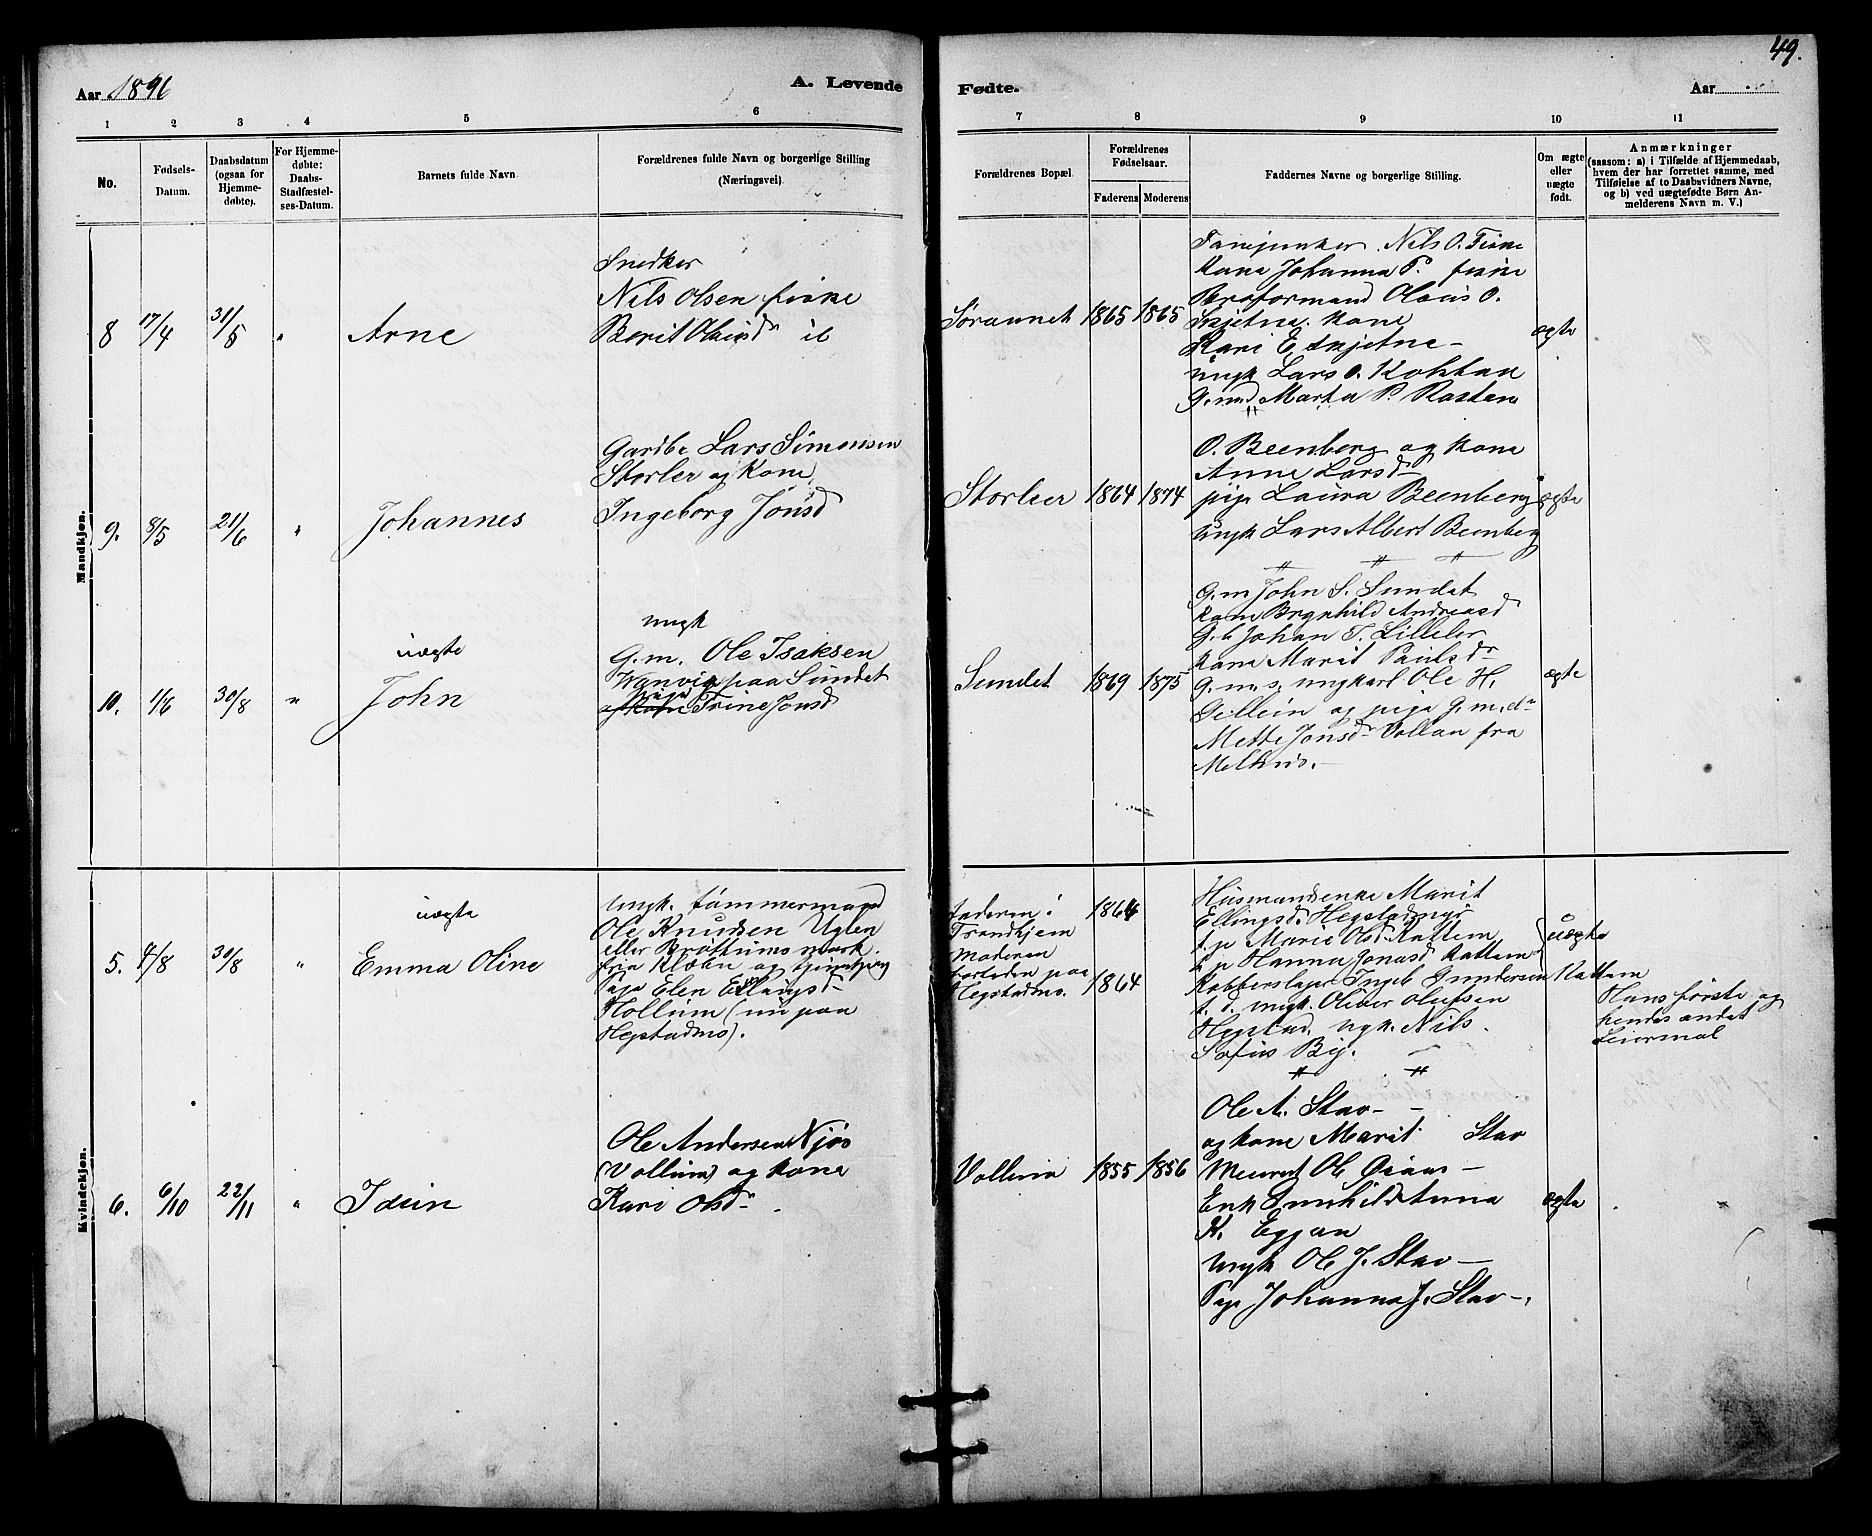 49.
Aar 1896
A. Levende
Fødte.
Aar
1 2 3 4 5 6
7 8 9 10 11
No.
Fødsels-
Datum.
Daabsdatum
(ogsaa for
Hjemme-
døbte).
For Hjemme-
døbte:
Daabs-
Stadfæstel-
ses-Datum.
Barnets fulde Navn.
Forældrenes fulde Navn og borgerlige Stilling
(Næringsvei).
Forældrenes Bopæl.
Forældrenes
Fødselsaar.
Faderens
Moderens
Faddernes Navne og borgerlige Stilling.
Om ægte
eller
uægte
født.
Anmærkninger
(saasom: a) i Tilfælde af Hjemmedaab,
hvem der har forrettet samme, med
Tilføielse af to Daabsvidners Navne,
og b) ved uægtefødte Børn An-
melderens Navn m. V.)
Mandkjøn.
8 17/4 31/5 " Arne
Snedker
Nils Olsen
Berit
1865 1865
Nils O.
Kone Johanna P.
O.
Kone
Kari E.
ungk Lars O.
Marta P.
ægte
9. 8/5 21/6 " Johannes
Gardbr Lars Simonsen
Storler og Kone
Ingeborg Jonsd
Storleer 1864 1874
O. Beenberg og Kone
Anne Larsd
pige Laura Beenberg
ungk Lars Albert Beenberg
ægte
10. 1/6 30/8 " uægte
John
ungk
G.m. Ole Isaksen
paa Sundet
Trine Jonsd
Sundet 1869 1875
G.m John S. Sundet
Kone Brynhild Andreasd
G.b Johan T. Lilleler
Kone Marit Paulsdr
G.m.s. ungkarl Ole H.
og pige G.m.d.
Mette Jonsd Vollan fra
Melhus.
ægte
Kvindekjøn.
5. 4/8 30/8 " uægte
Emma Oline
ungk. tømmermand
Ole Knudsen Uglen
eller
fra Klæbu og
Pige Elen Ellingsd
Hollum (nu paa
Hegstadmo).
Inderen i
Trondhjem
Moderen
paa
Hegstadmo.
1864
1864
Husmandsenke Marit
Ellingsd.
t. p Marie Olsd Rattem
t. p Hanna Jonasd Rattem
Kobberslager Ingeb Gundersen Rattem
t. d. ungk. Oliver Olufsen
Hegstad, ugk. Nils
Sofus By.
uægte
Hans første og
hendes andet
Leiermaal
6. 6/10 22/11 " Idun
Ole Andersen Njøs
(Vollum) og Kone
Kari Olsdr
1855 1856
Ole A. Stav
og Kone Marit Stav
Ole
Enk
K. Eggan
ungk Ole J. Stav
Pige Johanna J. Stav
ægte